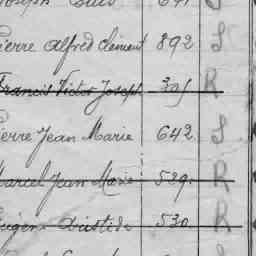 Joseph Louis 641 S
Pierre Alfred Clément 892 S
Francis Victor Joseph 305 R
Pierre Jean Marie 642 S
Marcel Jean Marie 529. R
Eugène Aristide 530. R